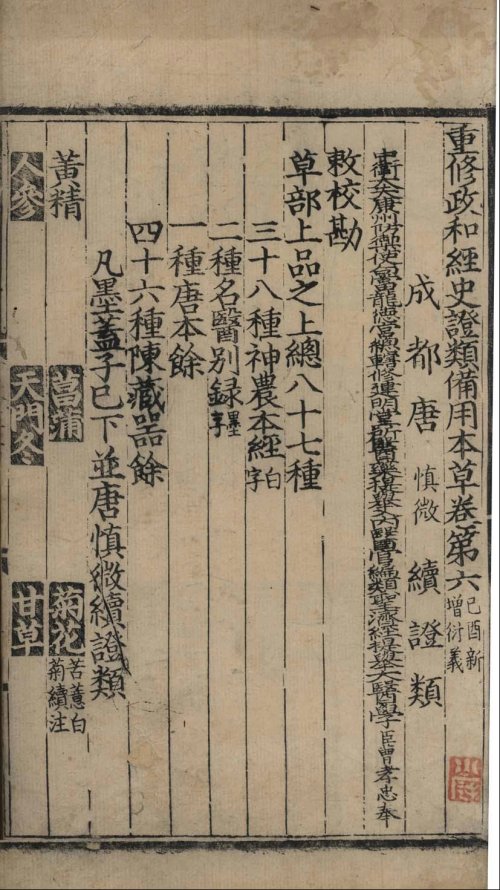 重修政和經史證類備用本草卷第六己酉新增衍義
成都唐慎微續證類
中衛大夫康州防禦使句當龍德宮總轄修建明堂所醫藥提舉入內醫官編類聖濟經提舉大醫學臣曹孝忠奉
敕校勘
草部上品之上總八十七種
三十八種神農本經白字
二種名醫別録墨字
一種唐本餘
四十六種陳藏器餘
凡墨蓋子已下並唐慎微續證類
黃精 菖蒲 菊花苦薏白菊續注
人參 天門冬 甘草